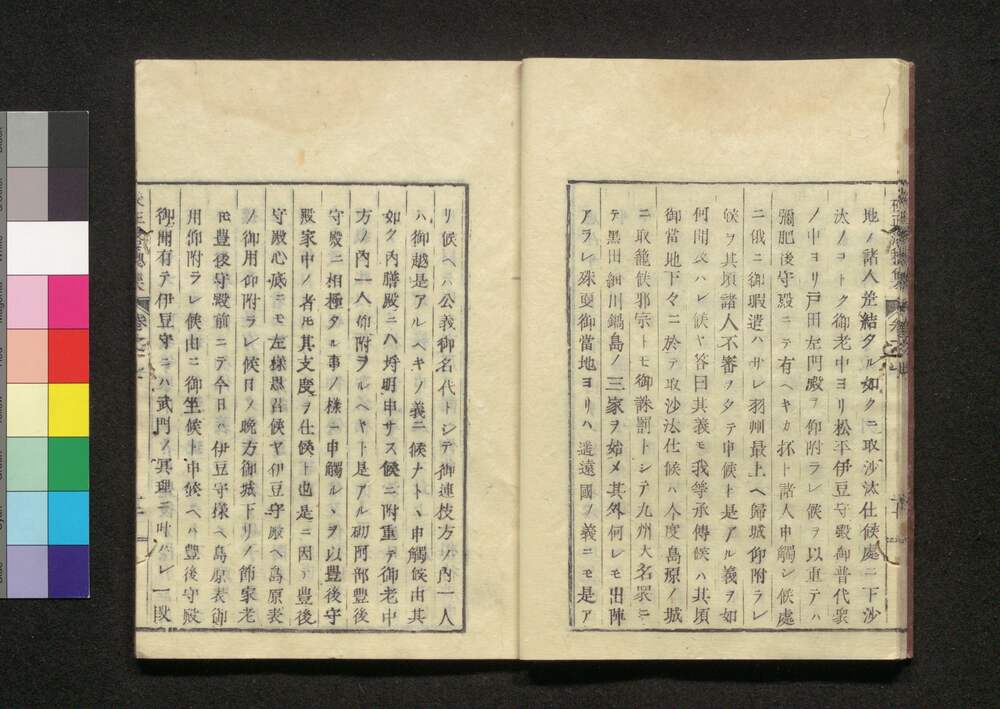 地ノ諸人差結タル如クニ取沙汰仕候處ニ下沙
汰ノコトク御老中ヨリ松平伊豆守殿御普代衆
ノ中ヨリ戸田左門殿ヲ仰附ラレ候ヲ以重テハ
彌肥後守殿ニテ有ヘキカ抔ト諸人申觸シ候處
ニ俄ニ御暇遣ハサレ羽州最上ヘ歸城仰附ラレ
候ヲ其頃諸人不審ヲタテ申候ト是アル義ヲ如
何聞及ハレ候ヤ答曰其義モ我等承傳候ハ其頃
御當地下々ニ於テ取沙法仕候ハ今度島原ノ城
ニ取籠候邪宗トモ御誅罰トシテ九州大名衆ニ
テ黑田細川鍋島ノ三家ヲ始メ其外何レモ出陣
アラレ殊更御當地ヨリハ遙遠國ノ義ニモ是ア
リ候ヘハ公義御名代トシテ御連技方ノ內一人
ハ御越是アルヘキノ義ニ候ナト、申觸候由其
如ク內膳殿ニハ埒明申サス候ニ附重テ御老中
方ノ內一人仰附ヲルヘヤト是アル砌阿部豐後
守殿ニ相極タル事ノ樣ニ申觸ルヽヲ以豐後守
殿家中ノ者𪜈其支度ヲ仕候ト也是ニ因テ豐後
守殿心底ニモ左樣思召候ヤ伊豆守殿ヘ島原表
ノ御用仰附ラレ候日ノ晚方御城下リノ節家老
𪜈豐後守殿前ニテ今日ハ伊豆守樣ヘ島原表御
用仰附ラレ候由ニ御坐候ト申候ヘハ豐後守殿
御聞有テ伊豆守ニハ武門ノ冥理ニ叶ハレ一段